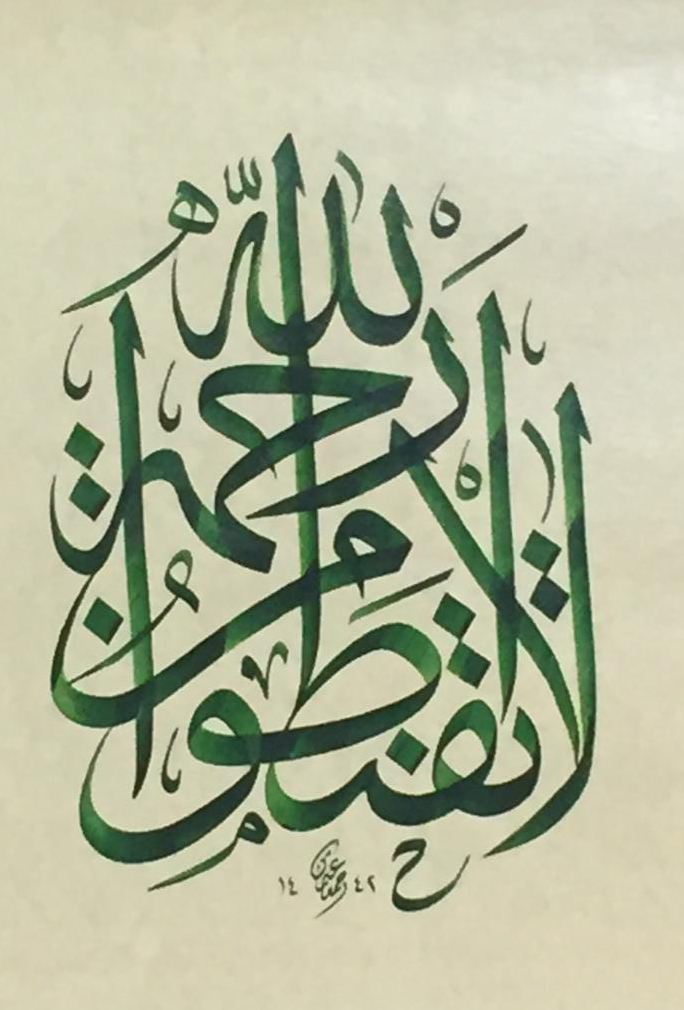 لا تقنطوا من رحمة الله
١٤٤٢